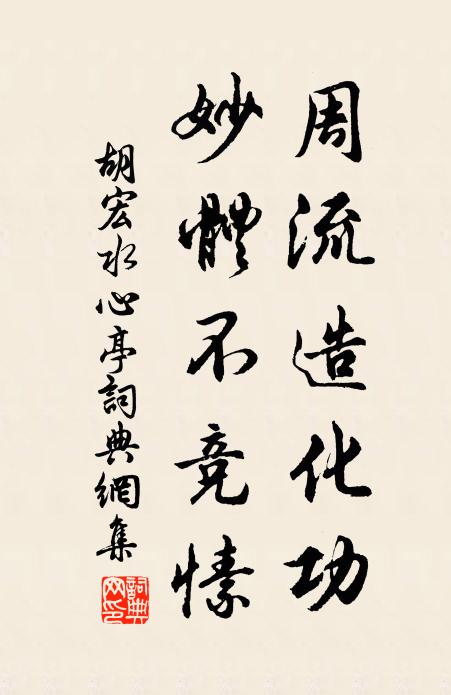 周流造化功
妙體不竟愫
胡宏水心亭詞典網集
詞典
网印